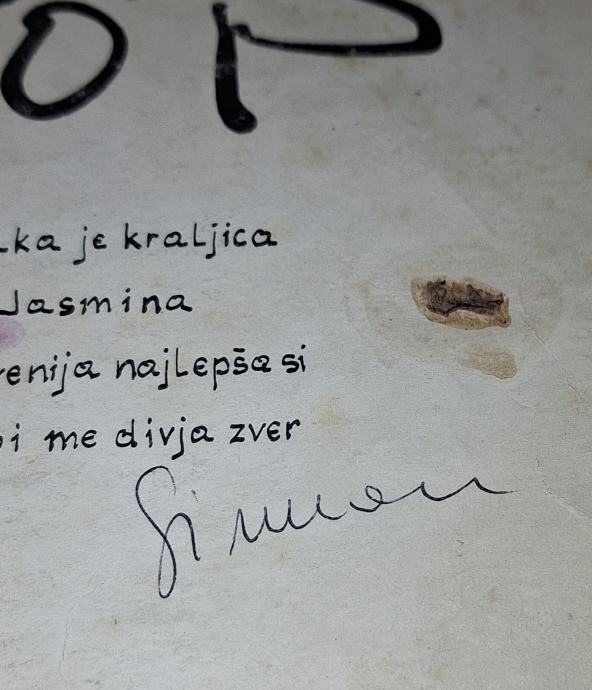 OP
ka je kraljica
Jasmina
enija najlepša si
i me divja zver
Simon